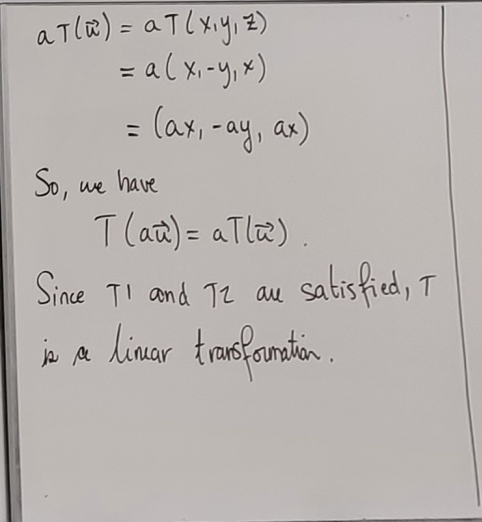 aT(u⃗) = aT(x,y,z)
= a(x,-y,x)
= (ax,-ay, ax)
So, we have
T(au⃗) = aT(u⃗).
Since T1 and T2 are satisfied, T
is a linear transformation.